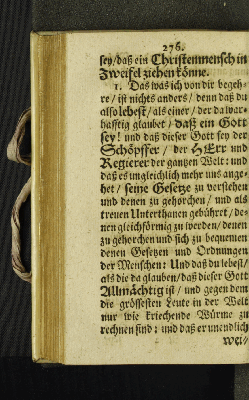 276.
sey/daß ein Christenmensch in
Zweifel ziehen könne.
1. Das was ich von dir begeh-
re/ ist nichts anders/ denn daß du
also lebest/ als einer/ der da war-
hafftig glaubet/ daß ein Gott
sey! und daß dieser Gott sey der
Schöpffer/ der HErr und
Regierer der gantzen Welt: und
daß es ungleichlich mehr uns ange-
het/ seine Gesetze zu verstehen
und denen zu gehorchen/ und als
treuen Unterthanen gebühret/ de-
nen gleichförmig zu werden/ denen
zu gehorchen und sich zu bequemen
denen Gesetzen und Ordnungen
der Menschen: Und daß du lebest/
als die da glauben/ daß dieser Gott
Allmächtig ist/ und gegen dem
die grössesten Leute in der Welt
nur wie kriechende Würme zu
rechnen sind: und daß er unendlich
wei-